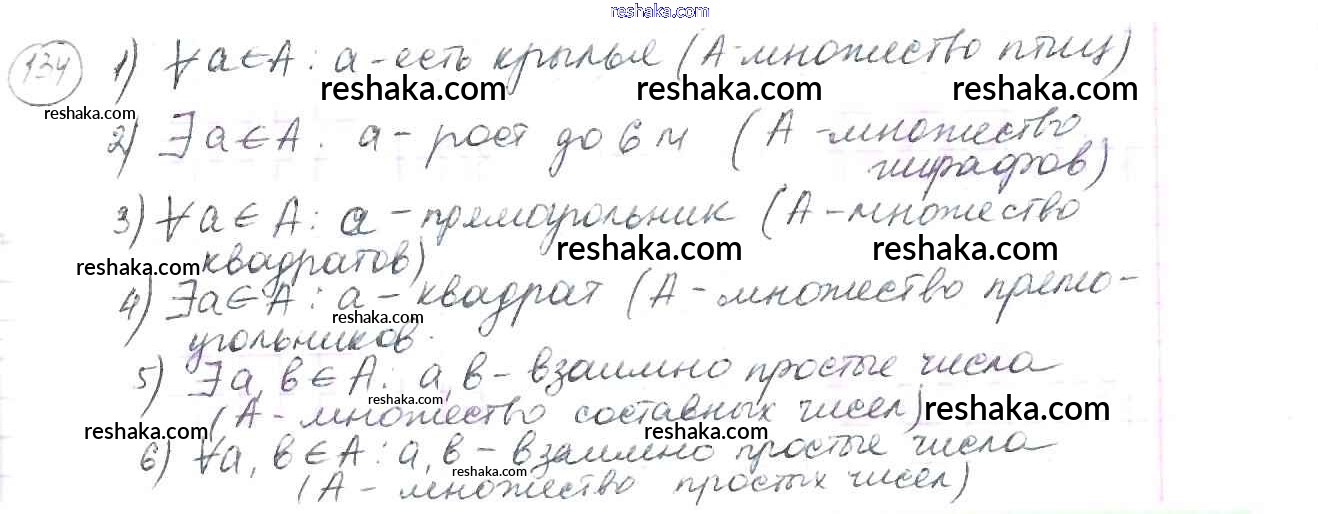 reshaka.com
134 1) ∀a∈A: a-есть крылья (A-множество птиц)
reshaka.com reshaka.com reshaka.com
reshaka.com
2) ∃a∈A: a - рост до 6 м (A - множество
жирафов)
3) ∀a∈A: a - прямоугольник (A - множество
reshaka.com reshaka.com
reshaka.com квадратов)
4) ∃a∈A: a - квадрат (A - множество прямо-
reshaka.com
угольников.
5) ∃a, b∈A: a, b - взаимно простые числа
reshaka.com
(A - множество составных чисел) reshaka.com
reshaka.com reshaka.com
6) ∀a, b∈A: a, b - взаимно простые числа
reshaka.com
(A - множество простых чисел)